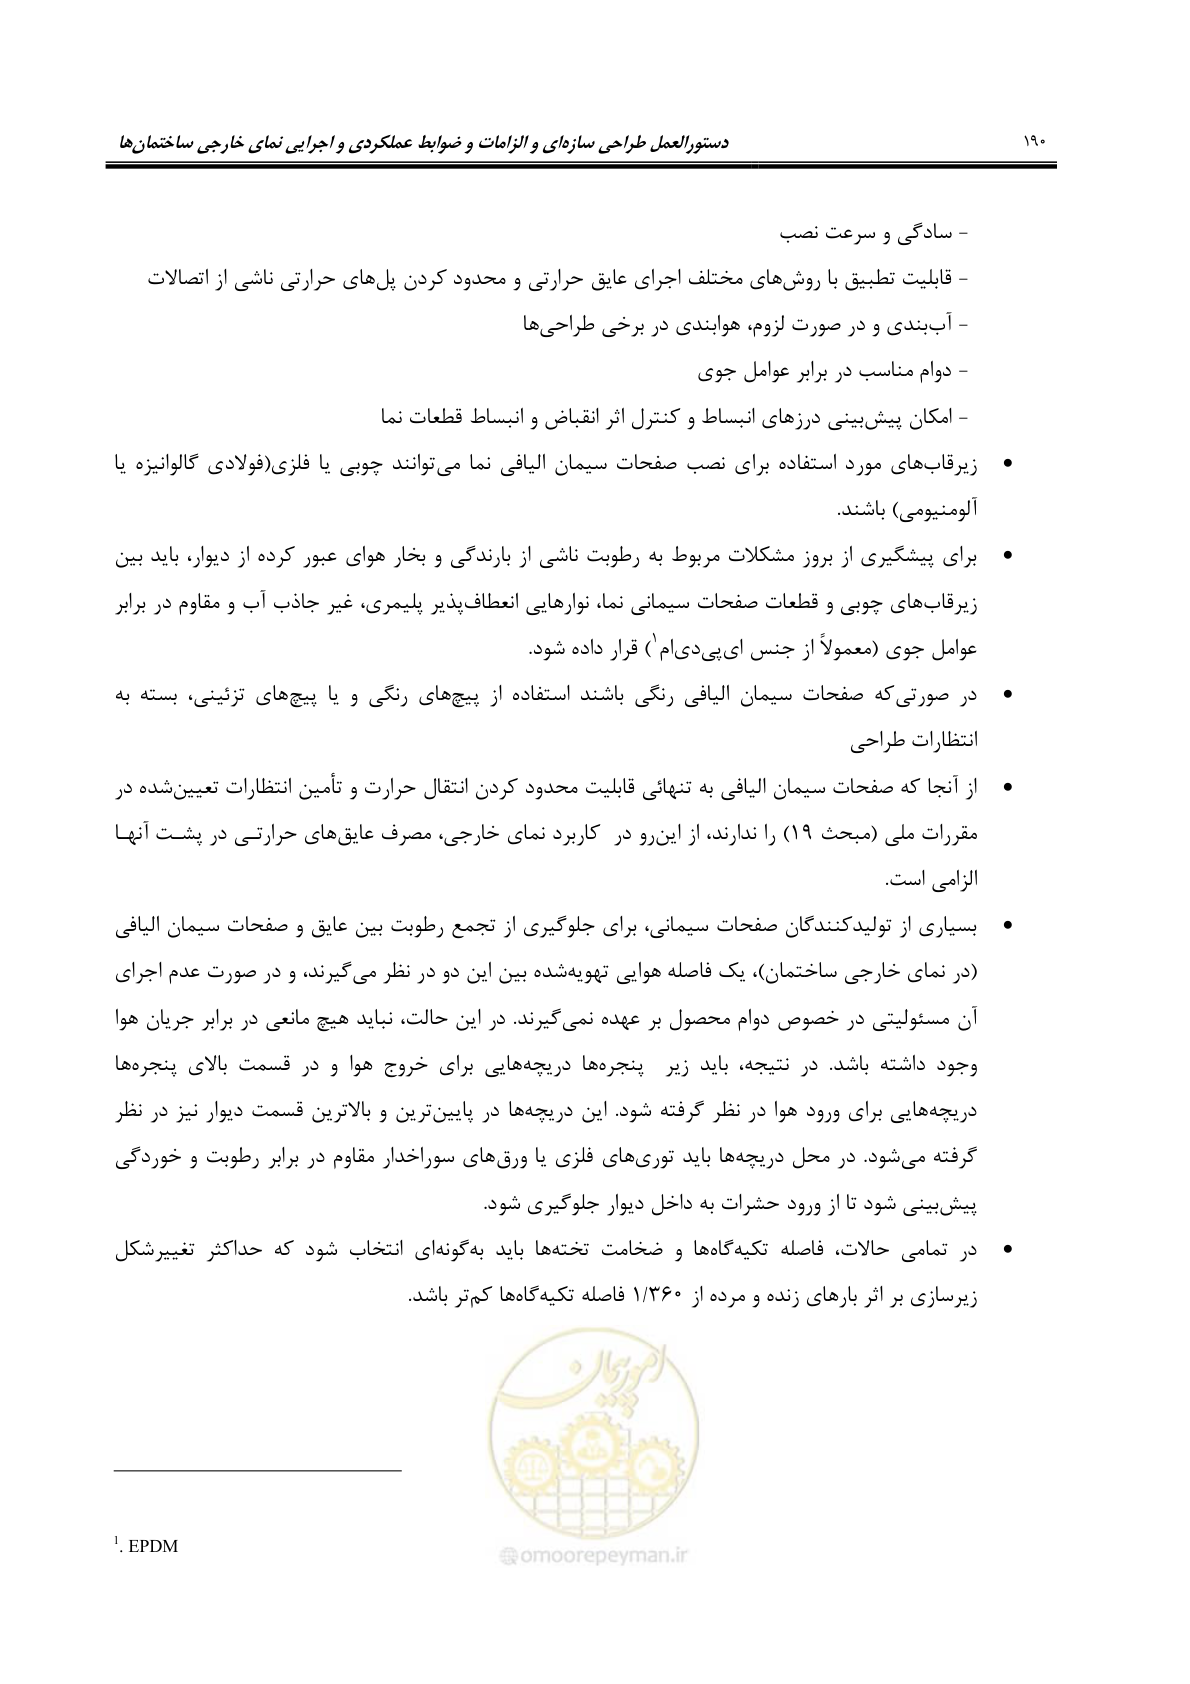 ۱۹۰
دستورالعمل طراحی سازه‌ای و الزامات و ضوابط عملکردی و اجرایی نمای خارجی ساختمان‌ها
- سادگی و سرعت نصب
- قابلیت تطبیق با روش‌های مختلف اجرای عایق حرارتی و محدود کردن پل‌های حرارتی ناشی از اتصالات
- آب‌بندی و در صورت لزوم، هوابندی در برخی طراحی‌ها
- دوام مناسب در برابر عوامل جوی
- امکان پیش‌بینی درزهای انبساط و کنترل اثر انقباض و انبساط قطعات نما
• زیرقاب‌های مورد استفاده برای نصب صفحات سیمان الیافی نما می‌توانند چوبی یا فلزی(فولادی گالوانیزه یا
آلومنیومی) باشند.
• برای پیشگیری از بروز مشکلات مربوط به رطوبت ناشی از بارندگی و بخار هوای عبور کرده از دیوار، باید بین
زیرقاب‌های چوبی و قطعات صفحات سیمانی نما، نوارهایی انعطاف‌پذیر پلیمری، غیر جاذب آب و مقاوم در برابر
عوامل جوی (معمولاً از جنس ای‌پی‌دی‌ام۱) قرار داده شود.
• در صورتی‌که صفحات سیمان الیافی رنگی باشند استفاده از پیچ‌های رنگی و یا پیچ‌های تزئینی، بسته به
انتظارات طراحی
• از آنجا که صفحات سیمان الیافی به تنهائی قابلیت محدود کردن انتقال حرارت و تأمین انتظارات تعیین‌شده در
مقررات ملی (مبحث ۱۹) را ندارند، از این‌رو در کاربرد نمای خارجی، مصرف عایق‌های حرارتـی در پشـت آنهـا
الزامی است.
• بسیاری از تولیدکنندگان صفحات سیمانی، برای جلوگیری از تجمع رطوبت بین عایق و صفحات سیمان الیافی
(در نمای خارجی ساختمان)، یک فاصله هوایی تهویه‌شده بین این دو در نظر می‌گیرند، و در صورت عدم اجرای
آن مسئولیتی در خصوص دوام محصول بر عهده نمی‌گیرند. در این حالت، نباید هیچ مانعی در برابر جریان هوا
وجود داشته باشد. در نتیجه، باید زیر پنجره‌ها دریچه‌هایی برای خروج هوا و در قسمت بالای پنجره‌ها
دریچه‌هایی برای ورود هوا در نظر گرفته شود. این دریچه‌ها در پایین‌ترین و بالاترین قسمت دیوار نیز در نظر
گرفته می‌شود. در محل دریچه‌ها باید توری‌های فلزی یا ورق‌های سوراخدار مقاوم در برابر رطوبت و خوردگی
پیش‌بینی شود تا از ورود حشرات به داخل دیوار جلوگیری شود.
• در تمامی حالات، فاصله تکیه‌گاه‌ها و ضخامت تخته‌ها باید به‌گونه‌ای انتخاب شود که حداکثر تغییرشکل
زیرسازی بر اثر بارهای زنده و مرده از ۱/۳۶۰ فاصله تکیه‌گاه‌ها کم‌تر باشد.
امور پیمان
@omoorepeyman.ir
1. EPDM